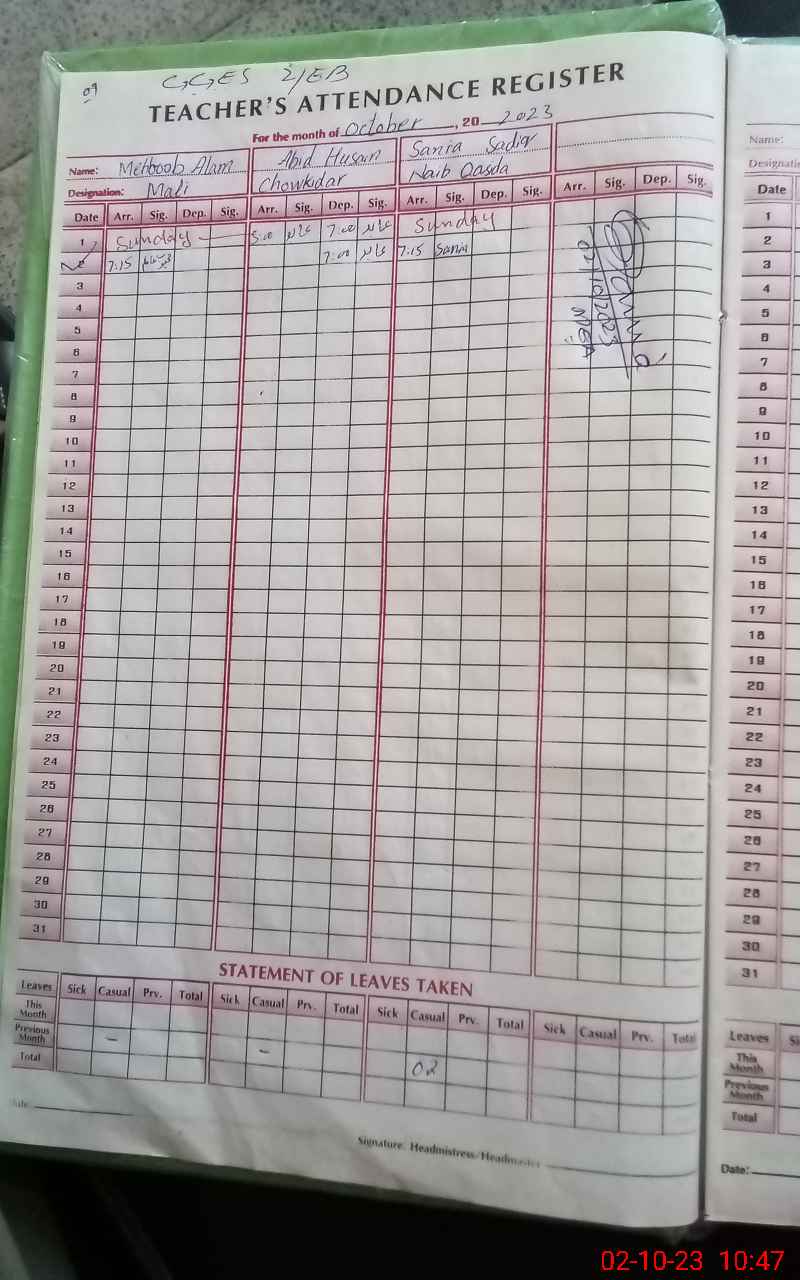 09
G,G,ES 2/EB
TEACHER'S ATTENDANCE REGISTER
For the month of October, 20 2023
Name: Mehboob Alam Abid Husain Sania Sadiq
Designation: Mali Chowkidar Naib Qasda
Date Arr. Sig. Dep. Sig. Arr. Sig. Dep. Sig. Arr. Sig. Dep. Sig. Arr. Sig. Dep. Sig.
1 Sunday 5:00 7:00 Sunday
2 7:15 7:00 7:15 Sania
3
4
5
6
7
8
9
10
11
12
13
14
15
16
17
18
19
20
21
22
23
24
25
26
27
28
29
30
31
02/10/2023
MEA
STATEMENT OF LEAVES TAKEN
Leaves Sick Casual Prv. Total Sick Casual Prv. Total Sick Casual Prv. Total Sick Casual Prv. Total
This Month
Previous Month - - 02
Total
Signature. Headmistress/Headmaster
Name:
Date Arr.
1
2
3
4
5
6
7
8
9
10
11
12
13
14
15
16
17
18
19
20
21
22
23
24
25
26
27
28
29
30
31
Leaves
This Month
Previous Month
Total
Date:
02-10-23 10:47